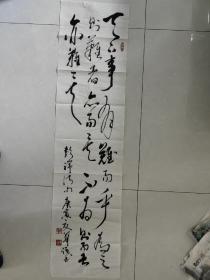 天下事有難易乎為之
則難者亦易矣不為則易者
亦難矣
彭端淑 庚寅